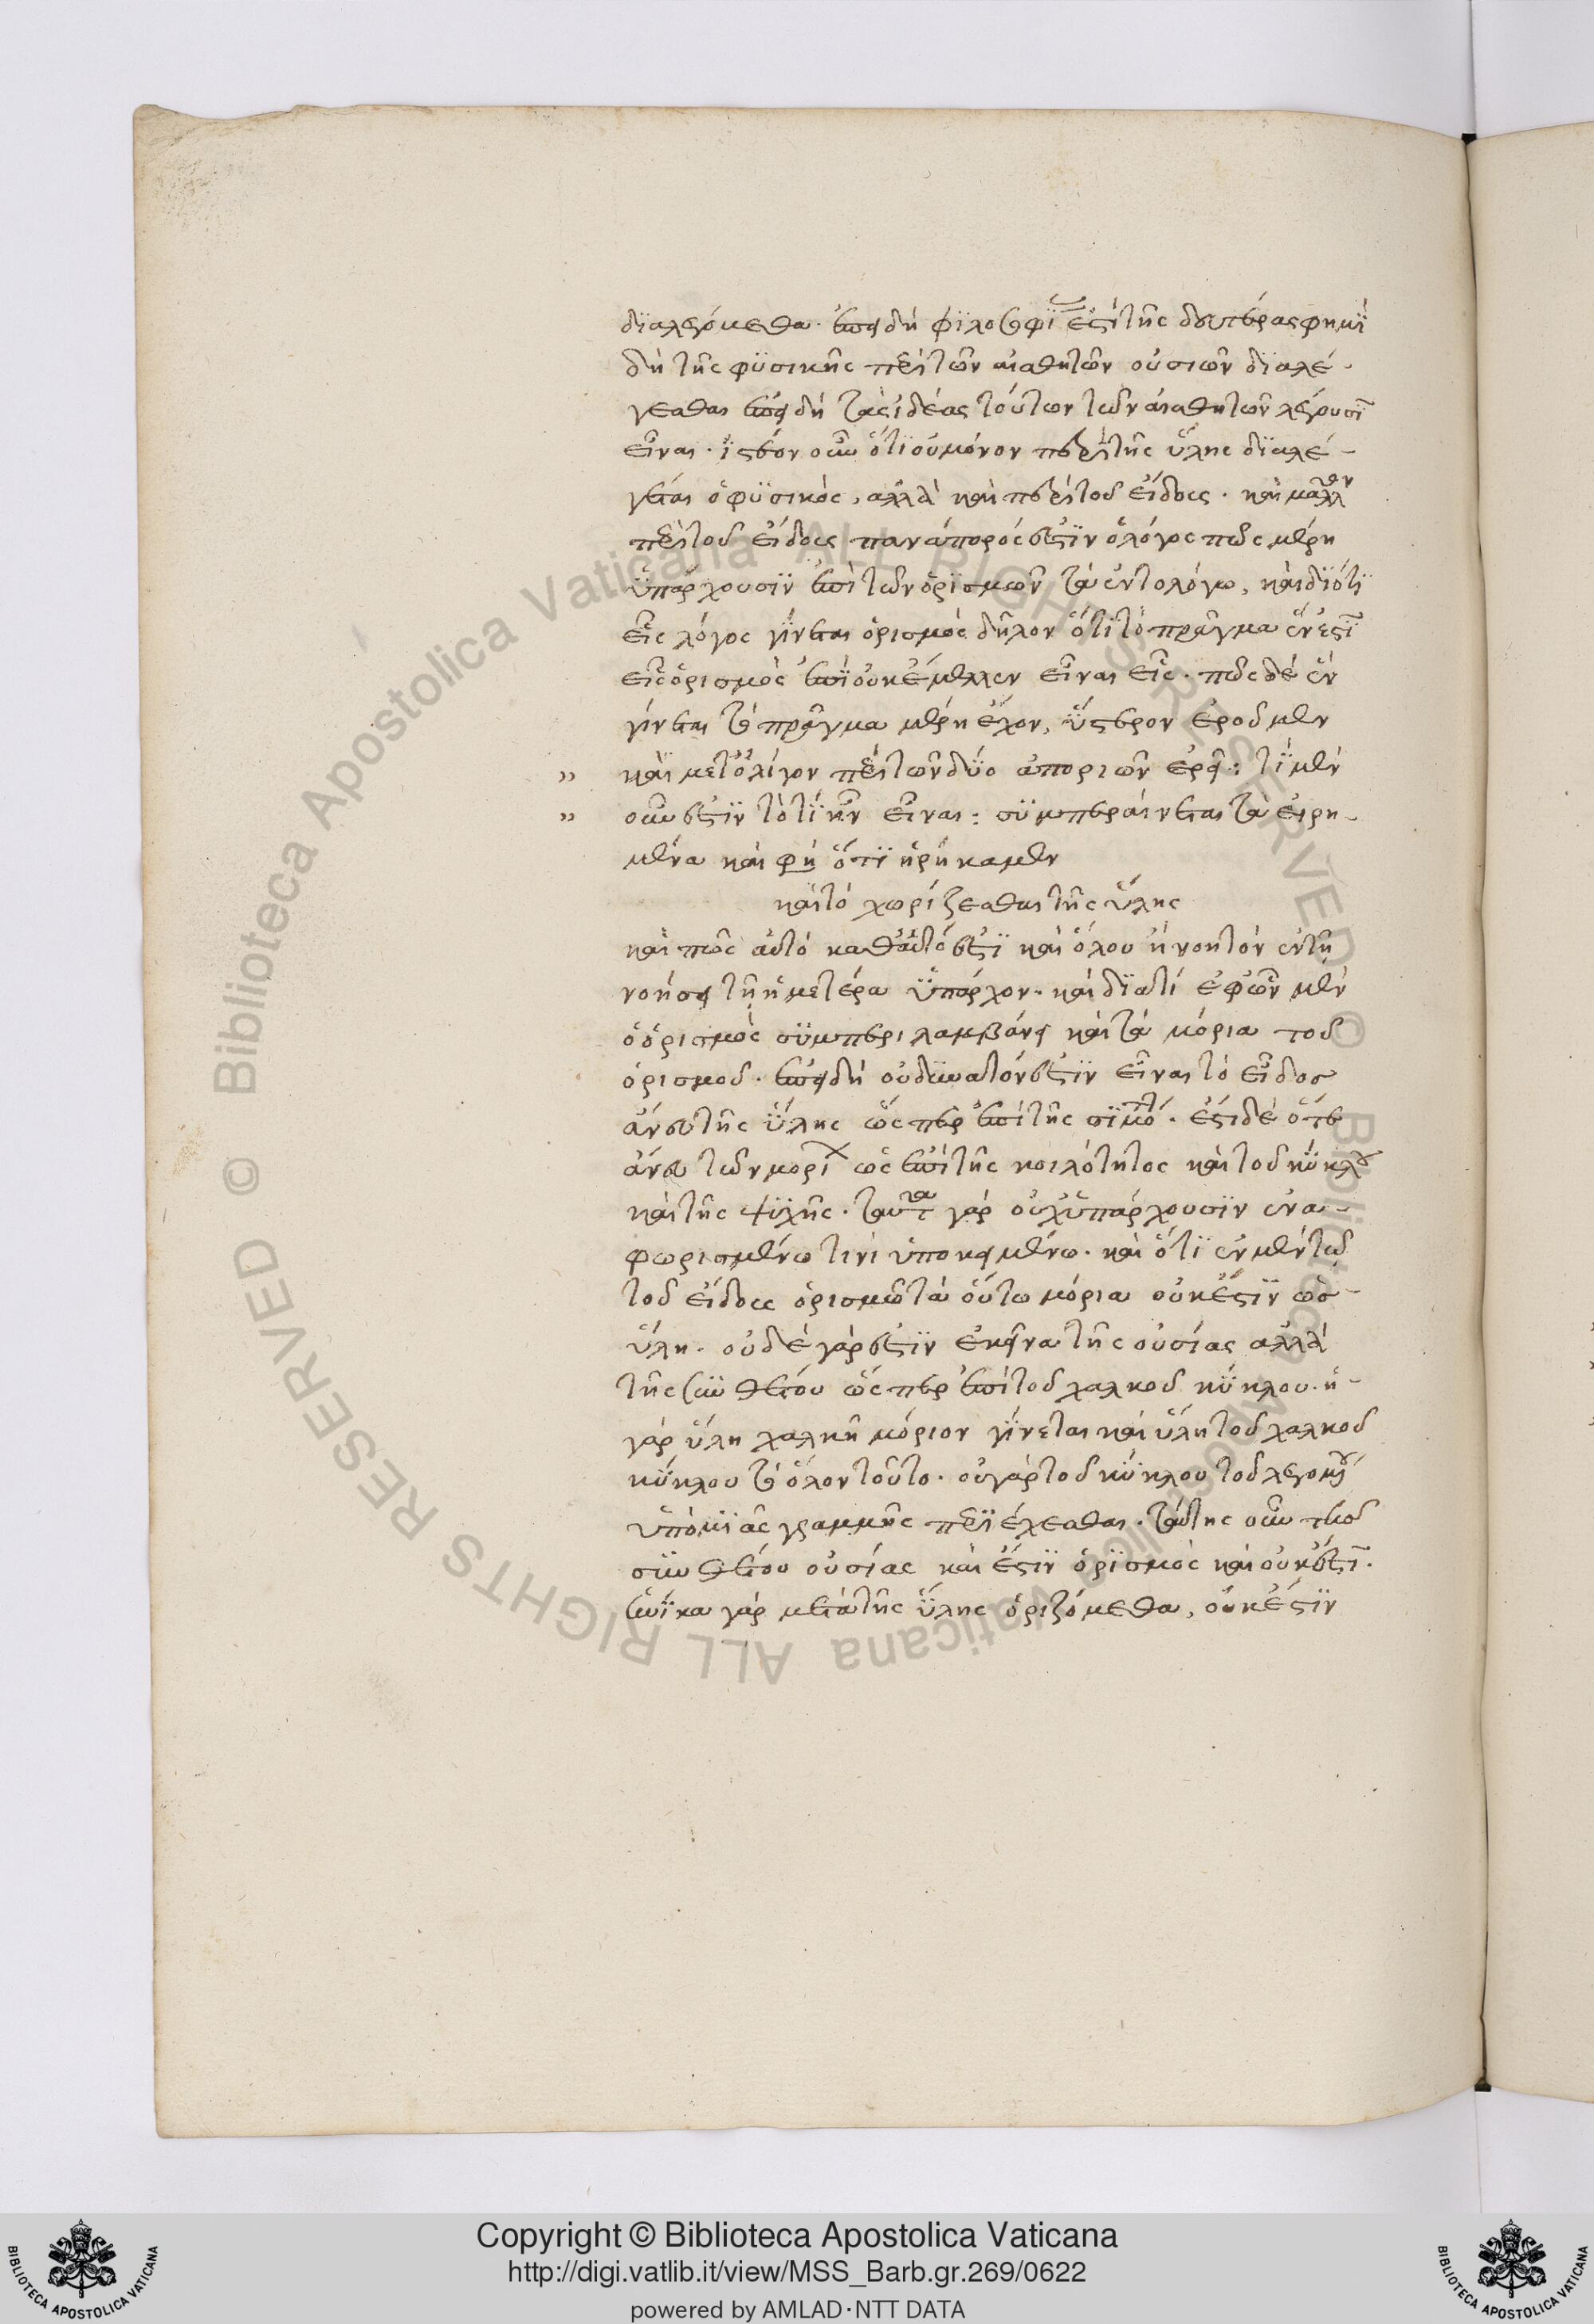 διαλεγόμεθα. ἐπειδὴ φιλοσοφίας ἐστὶ τῆς δευτέρας φημὶ
δὴ τῆς φυσικῆς περὶ τῶν αἰσθητῶν οὐσιῶν διαλέ-
γεσθαι ἐπειδὴ τὰς ἰδέας τούτων τῶν αἰσθητῶν λέγουσι
εἶναι. ἰστέον οὖν ὅτι οὐ μόνον περὶ τῆς ὕλης διαλέ-
γεται ὁ φυσικός, ἀλλὰ καὶ περὶ τοῦ εἴδους. καὶ μᾶλλον
περὶ τοῦ εἴδους παν ἄπορός ἐστιν ὁ λόγος πῶς μέρη
ὑπάρχουσιν ἐπὶ τῶν ὁρισμῶν τὰ ἐν τῷ λόγῳ, καὶ διότι
εἷς λόγος γίνεται ὁρισμὸς δῆλον ὅτι τὸ πρᾶγμα ἕν ἐστι
εἷς ὁρισμὸς ἐπεὶ οὐκ ἔμελλεν εἶναι εἷς. πῶς δὲ ἓν
γίνεται τὸ πρᾶγμα μέρη ἔχον, ὕστερον ἐροῦμεν
» καὶ μετ' ὀλίγον περὶ τῶν δύο ἀποριῶν ἐρεῖ: τί μὲν
» οὖν ἐστιν τὸ τί ἦν εἶναι: συμπεραίνεται τὰ εἰρη-
μένα καὶ φη ὅτι εἰρήκαμεν
καὶ τὸ χωρίζεσθαι τῆς ὕλης
καὶ πῶς αὐτὸ καθ' αὑτό ἐστι καὶ ὅλου ἢ νοητὸν ἐν τῇ
νοήσει τῇ ἡμετέρα ὑπάρχον. καὶ διατί ἐφ' ὧν μὲν
ὁ ὁρισμὸς συμπεριλαμβάνει καὶ τὰ μόρια τοῦ
ὁρισμοῦ. ἐπειδὴ οὐ δυνατόν ἐστιν εἶναι τὸ εἶδος
ἄνευ τῆς ὕλης ὥσπερ ἐπὶ τῆς σιμότητος. ἔστι δὲ ὅτε
ἄνευ τῶν μορίων ὡς ἐπὶ τῆς κοιλότητος καὶ τοῦ κύκλου
καὶ τῆς ψυχῆς. ταῦτα γὰρ οὐχ ὑπάρχουσιν ἐν ἀ-
φωρισμένω τινὶ ὑποκειμένω. καὶ ὅτι ἐν μὲν τῷ
τοῦ εἴδους ὁρισμῶ τὰ οὕτω μόρια οὐκ ἔστιν ὡς
ὕλη. οὐδὲ γάρ ἐστιν ἐκεῖνα τῆς οὐσίας ἀλλὰ
τῆς συνθέτου ὥσπερ ἐπὶ τοῦ χαλκοῦ κύκλου. ἡ
γὰρ ὕλη χαλκῆ μόριον γίνεται καὶ ὕλη τοῦ χαλκοῦ
κύκλου τὸ ὅλον τοῦτο. οὐ γὰρ τοῦ κύκλου τοῦ λεγομένου
ὑπὸ μιᾶς γραμμῆς περιέχεσθαι. ταύτης οὖν τῆς
συνθέτου οὐσίας καὶ ἔστιν ὁρισμὸς καὶ οὐκ ἔστι.
ἡνίκα γὰρ μετὰ τῆς ὕλης ὁριζόμεθα, οὐκ ἔστιν
Copyright © Biblioteca Apostolica Vaticana
http://digi.vatlib.it/view/MSS_Barb.gr.269/0622
powered by AMLAD·NTT DATA